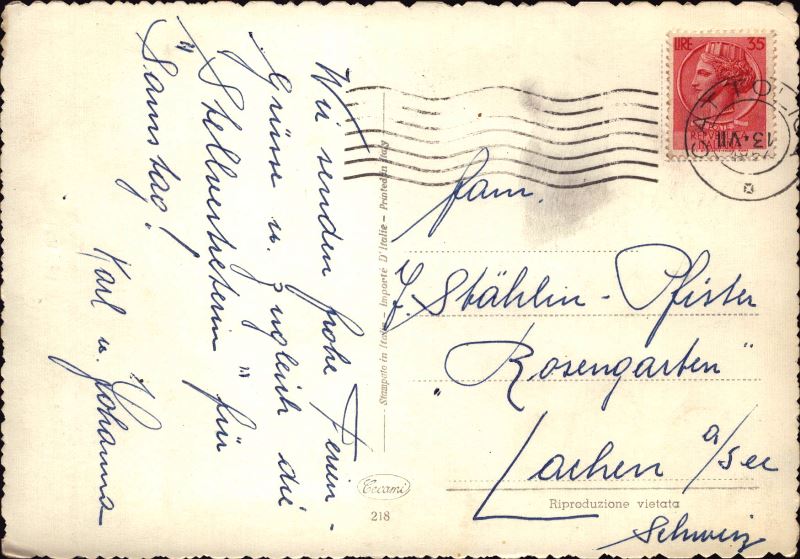 Wir senden frohe Ferien-
grüsse u. zugleich die
"Stellvertreterin" für
Samstag!
Karl u. Johanna
Stampato in Italia – Importé D'Italie – Printed in Italy
Cecami
218
LIRE 35
REPVBBLICA
ITALIANA
13·VII
Fam.
J. Stählin-Pfister
"Rosengarten"
Lachen a/see
Schweiz
Riproduzione vietata